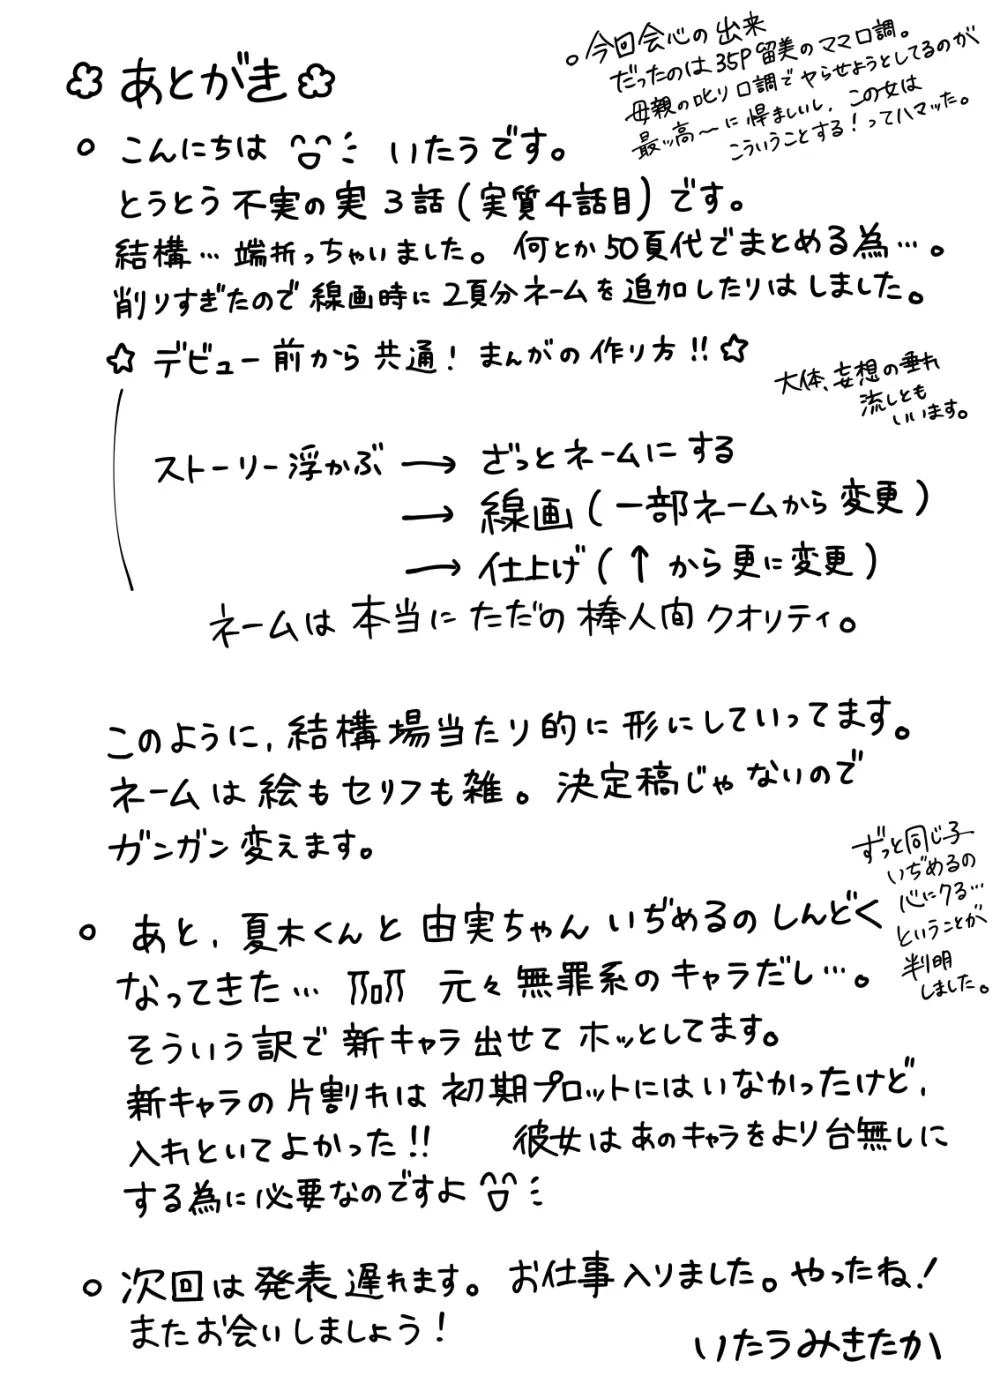 あとがき
○今回会心の出来
だったのは35P留美のママ口調。
母親の叱り口調でヤらせようとしてるのが
最ッ高〜に悍ましいし、この女は
こういうことする！ってハマッた。
○こんにちは いたうです。
とうとう不実の実3話(実質4話目)です。
結構…端折っちゃいました。何とか50頁代でまとめる為…。
削りすぎたので線画時に2頁分ネームを追加したりはしました。
☆デビュー前から共通！まんがの作り方!!☆
大体、妄想の垂れ
流しとも
いいます。
ストーリー浮かぶ→ざっとネームにする
→線画(一部ネームから変更)
→仕上げ(↑から更に変更)
ネームは本当にただの棒人間クオリティ。
このように、結構場当たり的に形にしていってます。
ネームは絵もセリフも雑。決定稿じゃないので
ガンガン変えます。
○あと、夏木くんと由実ちゃんいぢめるのしんどく
なってきた… 元々無罪系のキャラだし…。
ずっと同じ子
いぢめるの
心にクる…
ということが
判明
しました。
そういう訳で新キャラ出せてホッとしてます。
新キャラの片割れは初期プロットにはいなかったけど、
入れといてよかった!! 彼女はあのキャラをより台無しに
する為に必要なのですよ
○次回は発表遅れます。お仕事入りました。やったね！
またお会いしましょう！
いたうみきたか